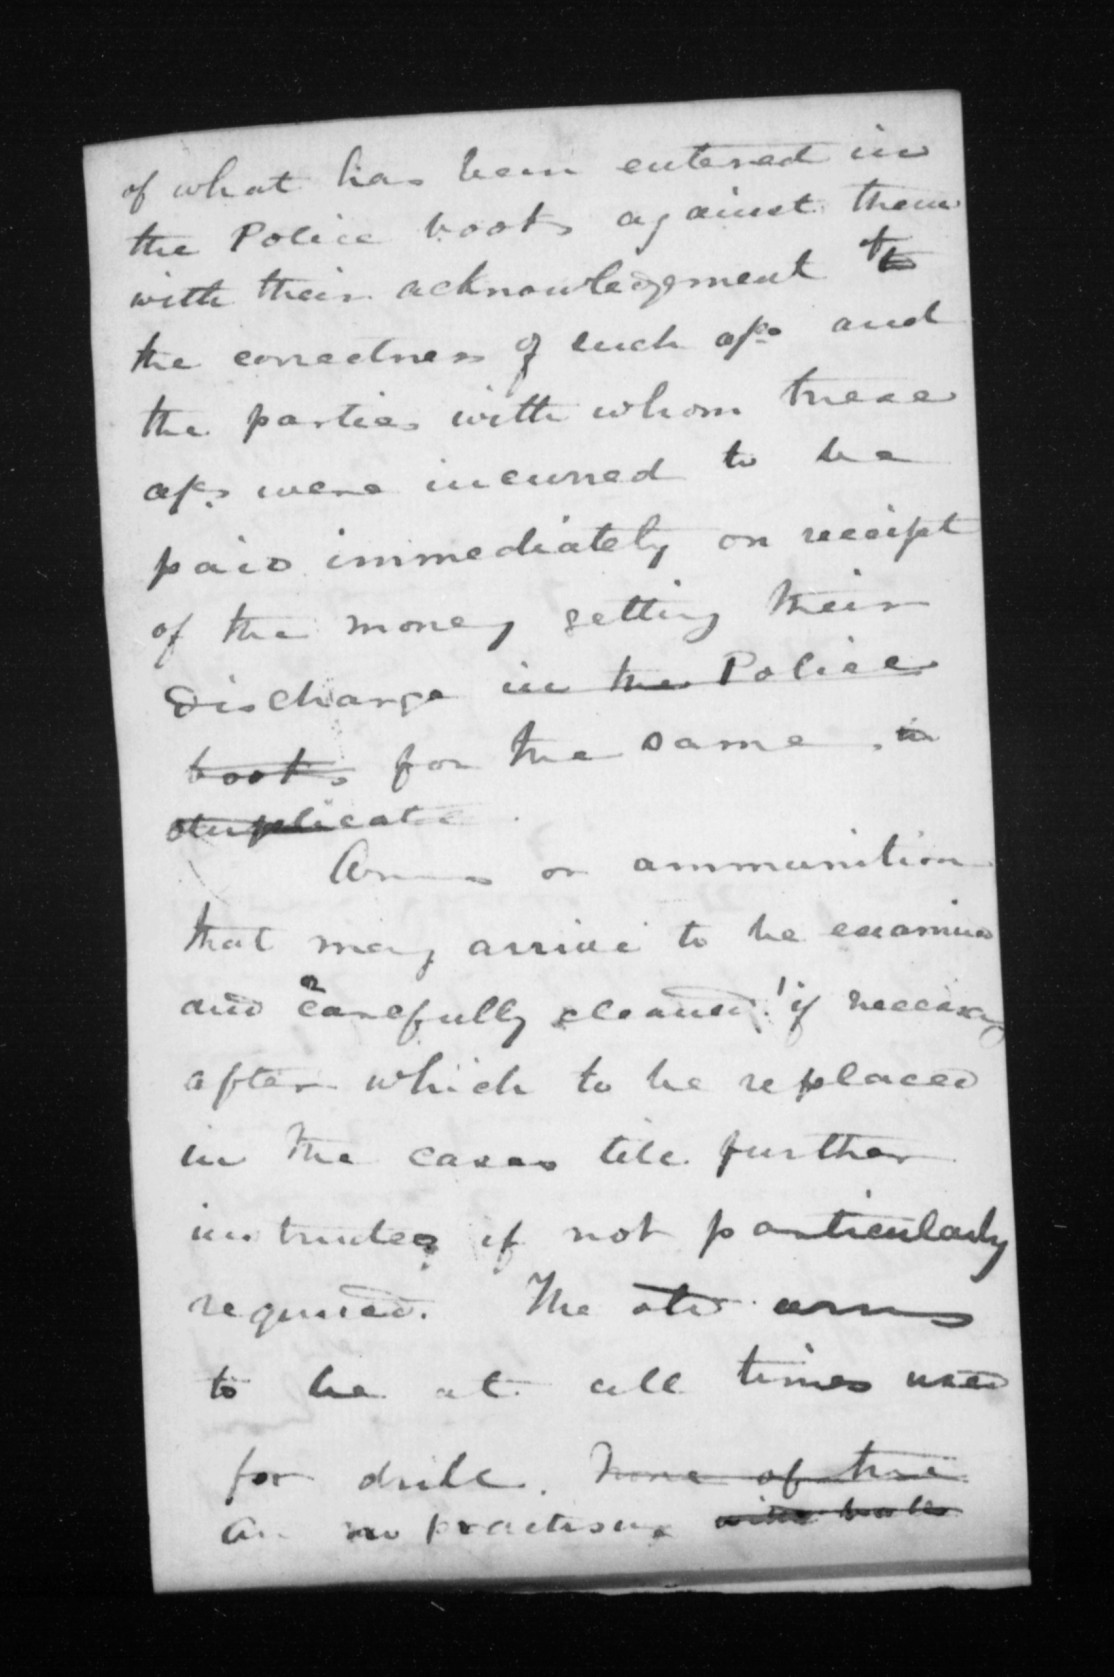 of what has been entered in
the Police books against them
with their acknowledgement of to
the correctness of such a/cs and
the parties with whom these
a/cs were incurred to be
paid immediately on receipt
of the money getting their
Discharge in the Police
books for the same in
duplicate
Arms or ammunition
that may arrive to be examined
and carefully cleaned if necessary
after which to be replaced
in the cases till further
instructed if not particularly
required. The old arms
to be at all times used
for drill. None of the
practising with balls